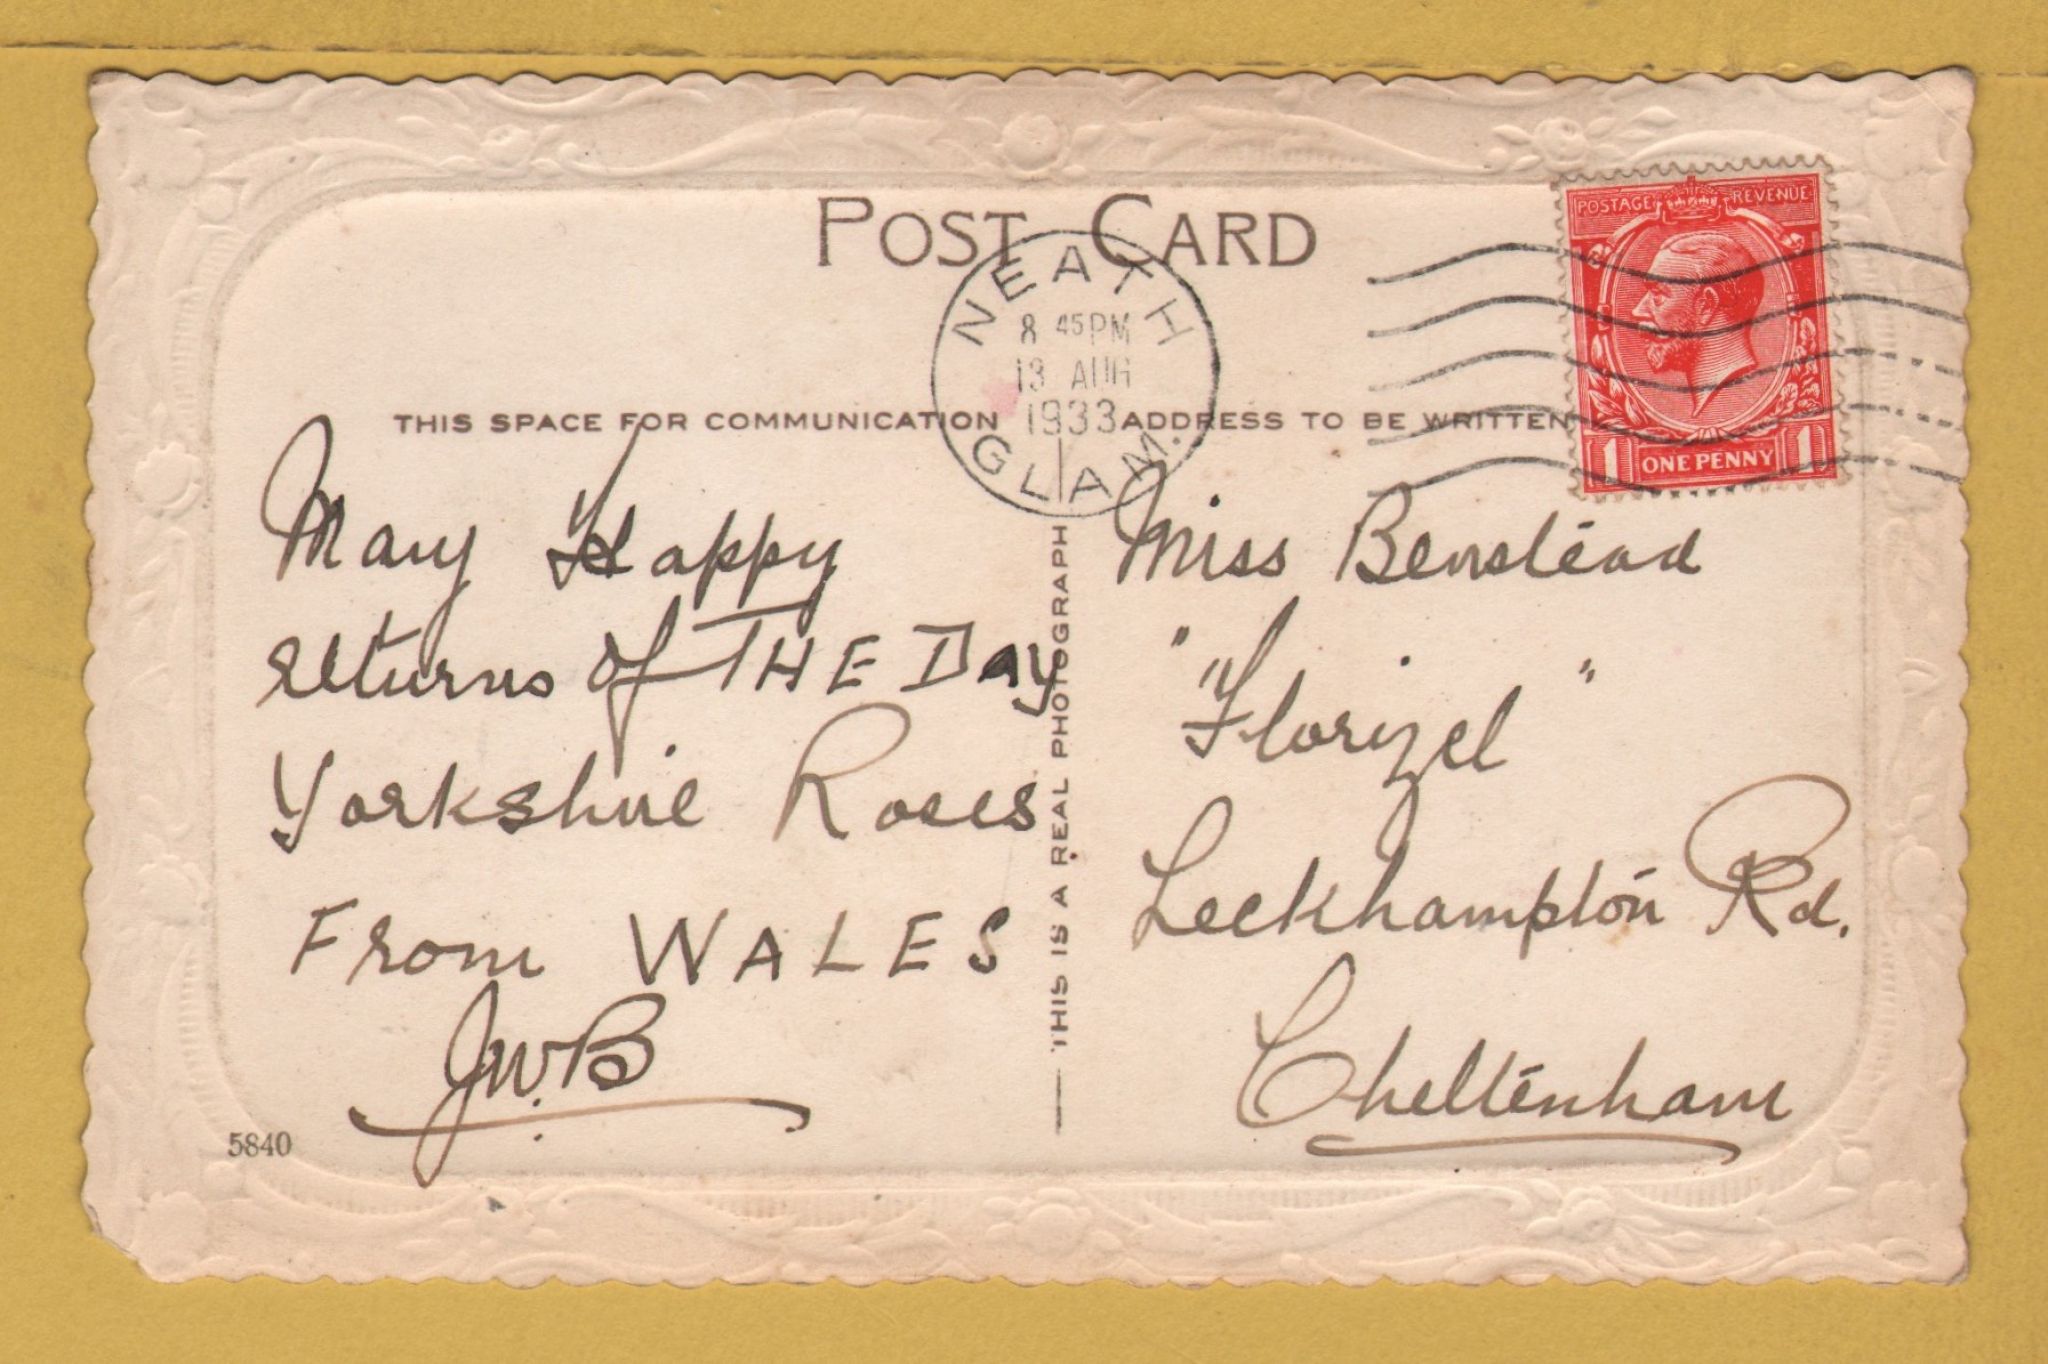 POST CARD
POSTAGE REVENUE
ONE PENNY
1 1
NEATH
8 45PM
13 AUG
1933
GLAM.
THIS SPACE FOR COMMUNICATION
ADDRESS TO BE WRITTEN
Many Happy
returns of THE Day
Yorkshire Roses
From WALES
J.W.B
5840
THIS IS A REAL PHOTOGRAPH
Miss Benstead
" "Florizel "
Leckhampton Rd.
Cheltenham